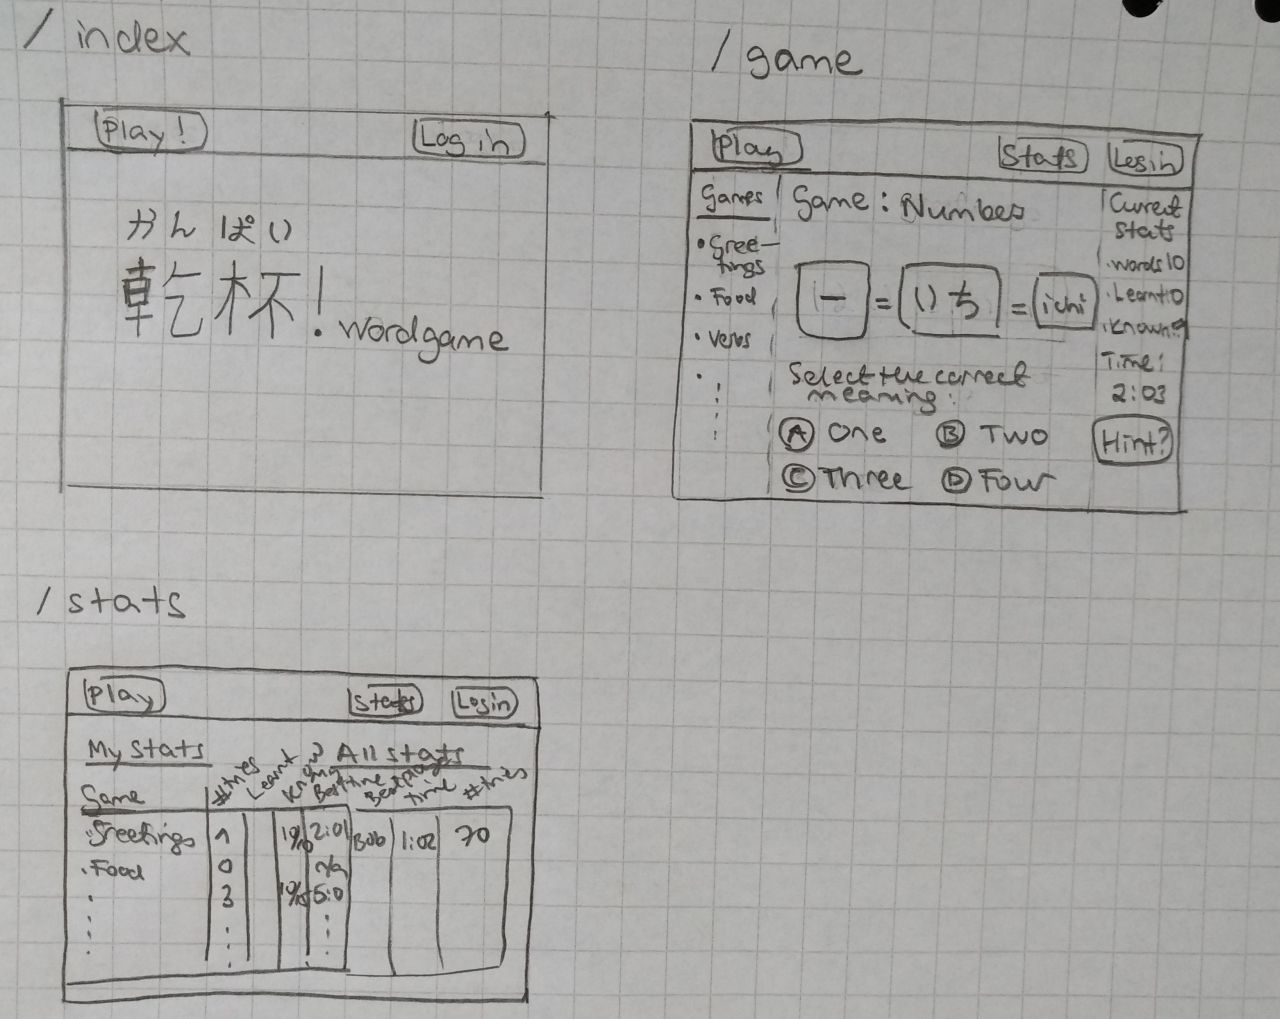 / index
Play!
Log in
かんぱい
乾杯! wordgame
/ game
Play
Stats
Login
Games
• Gree-
tings
• Food
• Verbs
Game: Numbers
一 = いち = ichi
Select the correct
meaning:
A One
B Two
C Three
D Four
Current
Stats
• words 10
• Learnt: 0
Time:
2:03
Hint?
/ stats
Play
Stats
Login
My Stats
All stats
Game
#tries
Learnt
Best time
time
#tries
• Greetings 1 2:01 Bob 1:02 70
• Food 0 n/a
3 5:0